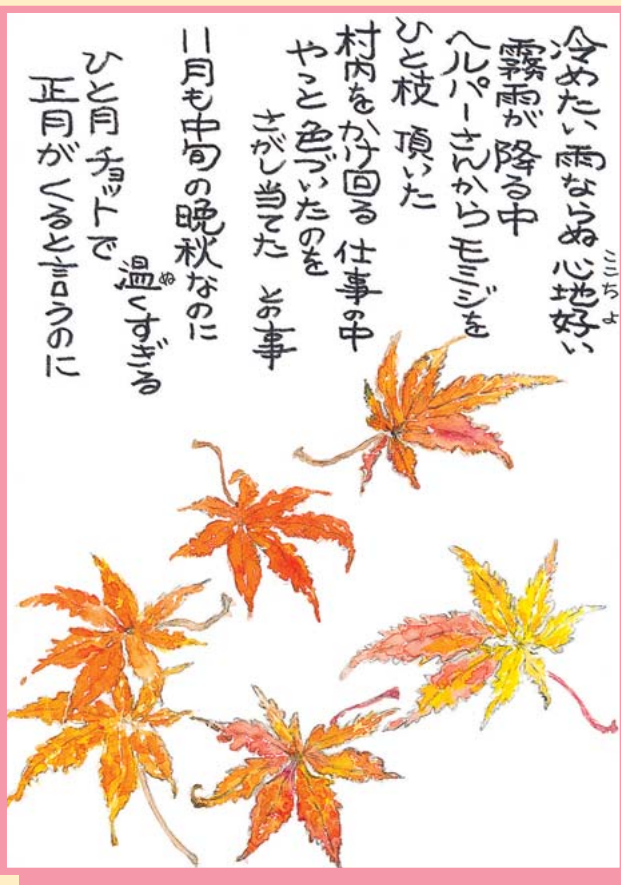 冷めたい雨ならぬ心地好い
ここちよ
霧雨が降る中
ヘルパーさんからモミジを
ひと枝 頂いた
村内をかけ回る 仕事の中
やっと色づいたのを
さがし当てた との事
11月も中旬の晩秋なのに
温くすぎる
ぬ
ひと月チョットで
正月がくると言うのに